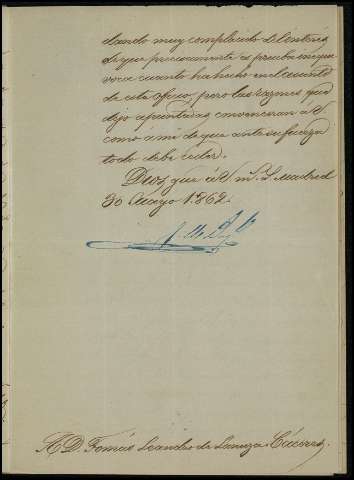 dando muy complacido del interés
de que precisamente es prueba inequi-
voca cuanto ha hecho en el asunto
de este oficio, pero las razones que
dejo apuntadas convenceran á V.
como á mi de que ante su fuerza
todo debe ceder.
Dios gue á V. m.s a.s Madrid
30 Mayo 1862.
A D. Tomás Leandro de Lanuza. Cáceres.